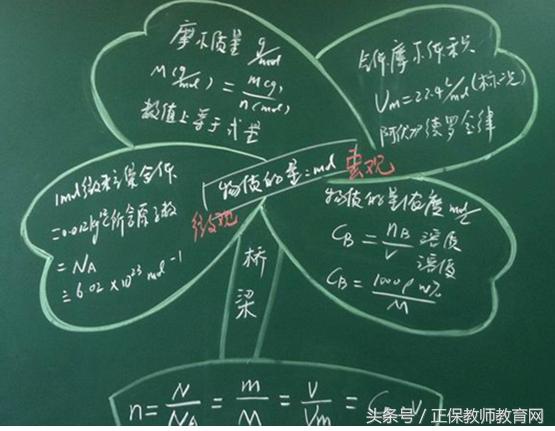 摩尔质量 g/mol
M(g/mol) = m(g)/n(mol)
数值上等于式量
气体摩尔体积
Vm=22.4L/mol(标况)
阿伏加德罗定律
物质的量:mol
宏观
微观
1mol微粒集合体
=0.012kg¹²C所含原子数
=NA
≐6.02×10²³ mol⁻¹
物质的量浓度 mol/L
CB = nB/V 溶质 溶液
CB = 1000ρw%/M
桥
梁
n= N/NA = m/M = V/Vm = C·V
头条号/正保教师教育网